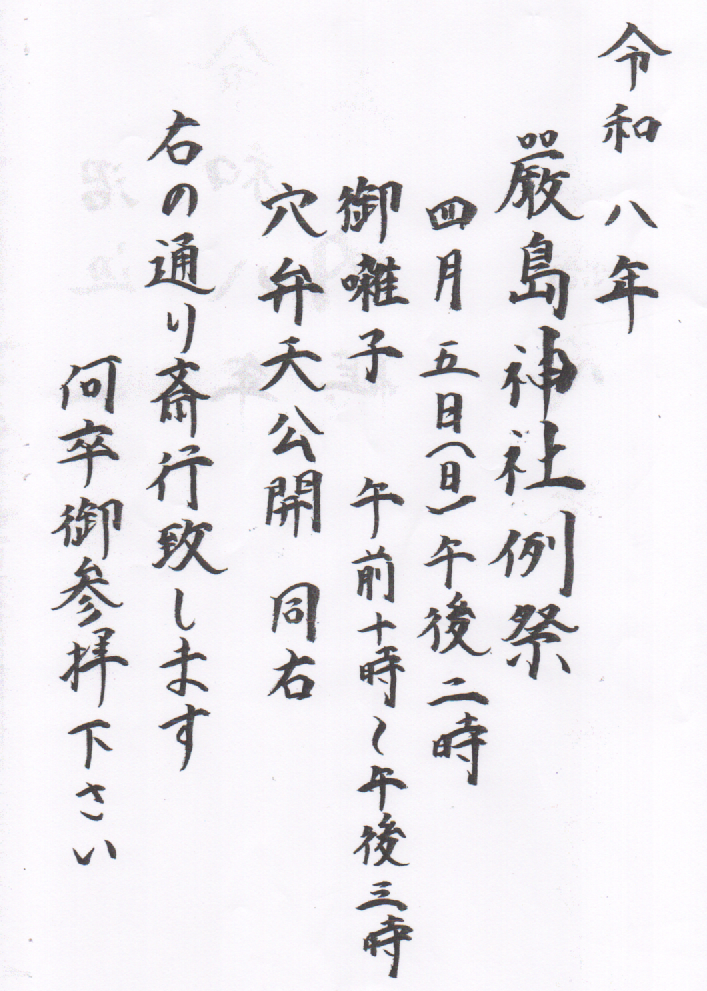 令和八年
厳島神社例祭
四月五日(日)午後二時
御囃子 午前十時～午後三時
穴弁天公開 同右
右の通り斎行致します
何卒御参拝下さい